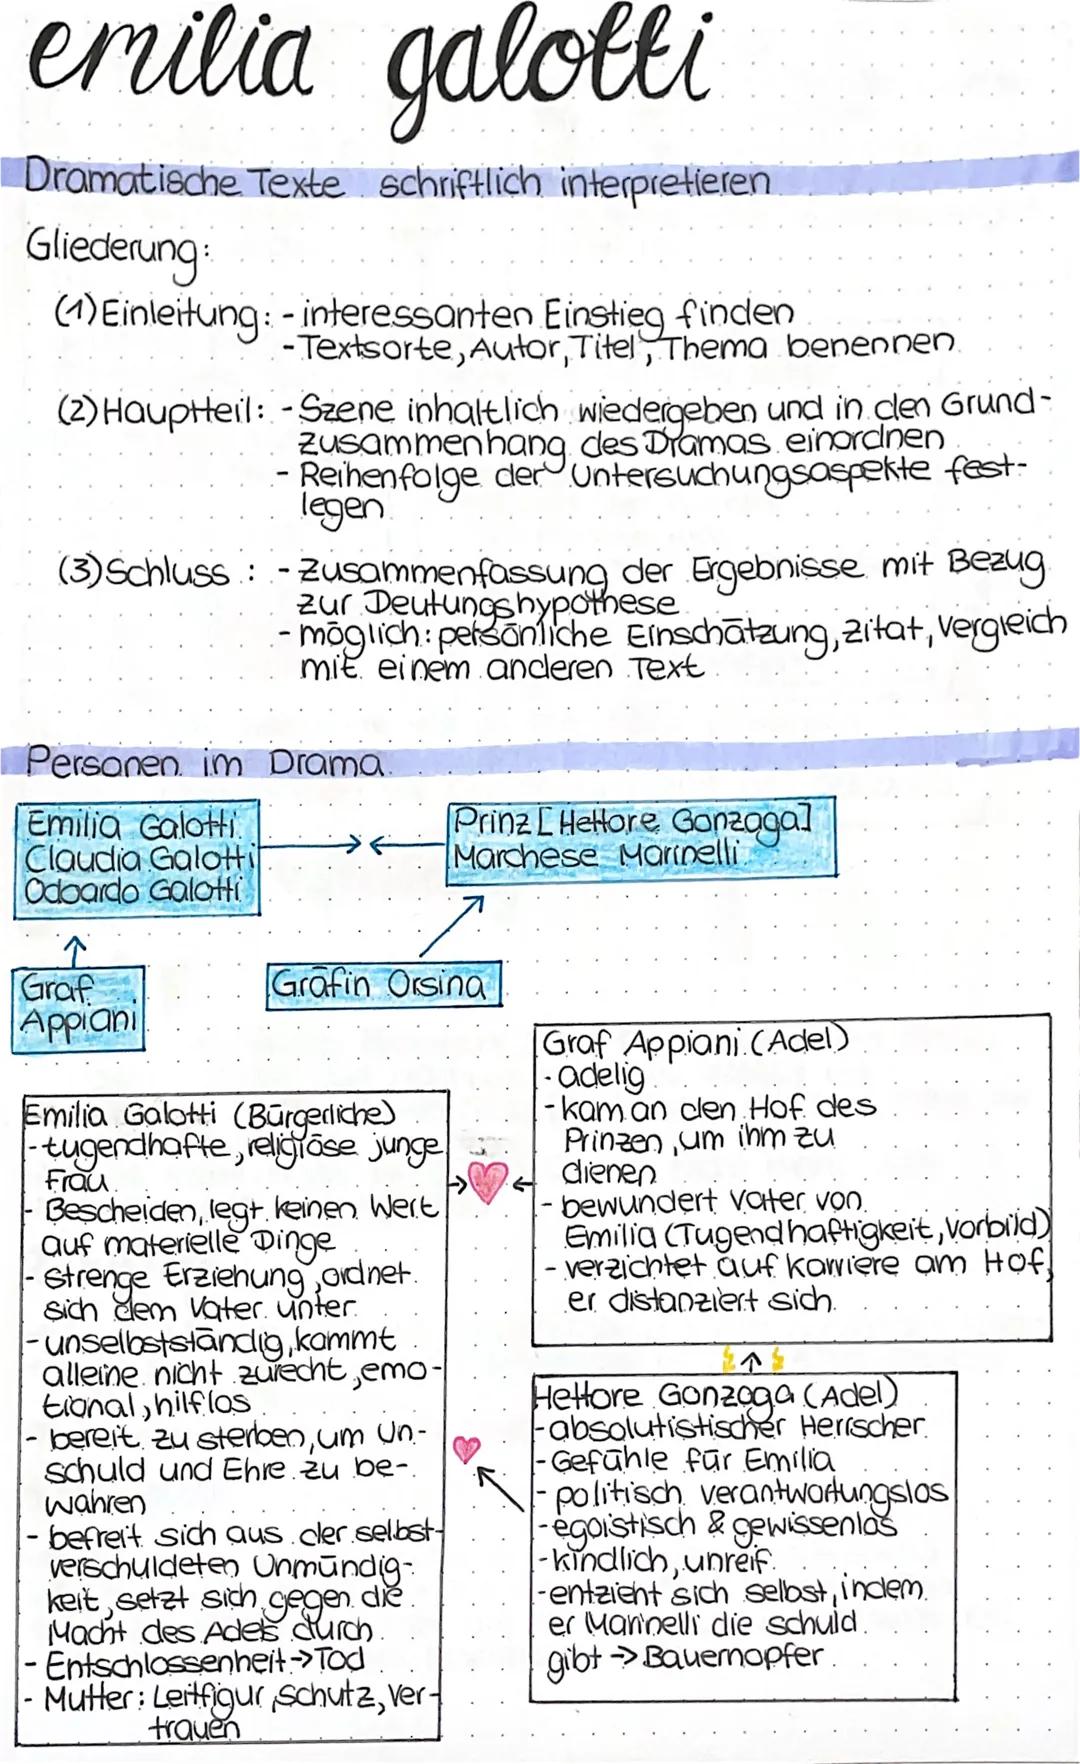 emilia galotti
Dramatische Texte schriftlich interpretieren
Gliederung:
(1) Einleitung: - interessanten Einstieg finden
- Textsorte, Autor, Titel, Thema benennen
(2) Hauptteil: - Szene inhaltlich wiedergeben und in den Grund-
zusammenhang des Dramas einordnen
- Reihenfolge der Untersuchungsaspekte fest-
legen
(3) Schluss: - Zusammenfassung der Ergebnisse mit Bezug
zur Deutungshypothese
- möglich: persönliche Einschätzung, Zitat, Vergleich
mit einem anderen Text
Personen im Drama
Emilia Galotti
Claudia Galotti
Odoardo Galotti
Prinz [Hettore Gonzaga]
Marchese Marinelli
Graf
Appiani
Gräfin Orsina
Emilia Galotti (Bürgerliche)
- tugendhafte, religiöse junge
Frau
- Bescheiden, legt keinen Wert
auf materielle Dinge
- strenge Erziehung, ordnet
sich dem Vater unter
- unselbstständig, kommt
alleine nicht zurecht, emo-
tional, hilflos
- bereit zu sterben, um Un-
schuld und Ehre zu be-
wahren
- befreit sich aus der selbst-
verschuldeten Unmündig-
keit, setzt sich gegen die
Macht des Adels durch
- Entschlossenheit → Tod
- Mutter: Leitfigur, Schutz, Ver-
trauen
Graf Appiani (Adel)
- adelig
- kam an den Hof des
Prinzen, um ihm zu
dienen
- bewundert Vater von
Emilia (Tugendhaftigkeit, Vorbild)
- verzichtet auf Karriere am Hof,
er distanziert sich
Hettore Gonzaga (Adel)
- absolutistischer Herrscher
- Gefühle für Emilia
- politisch verantwortungslos
- egoistisch & gewissenlos
- kindlich, unreif
- entzieht sich selbst, indem
er Marinelli die schuld
gibt → Bauernopfer